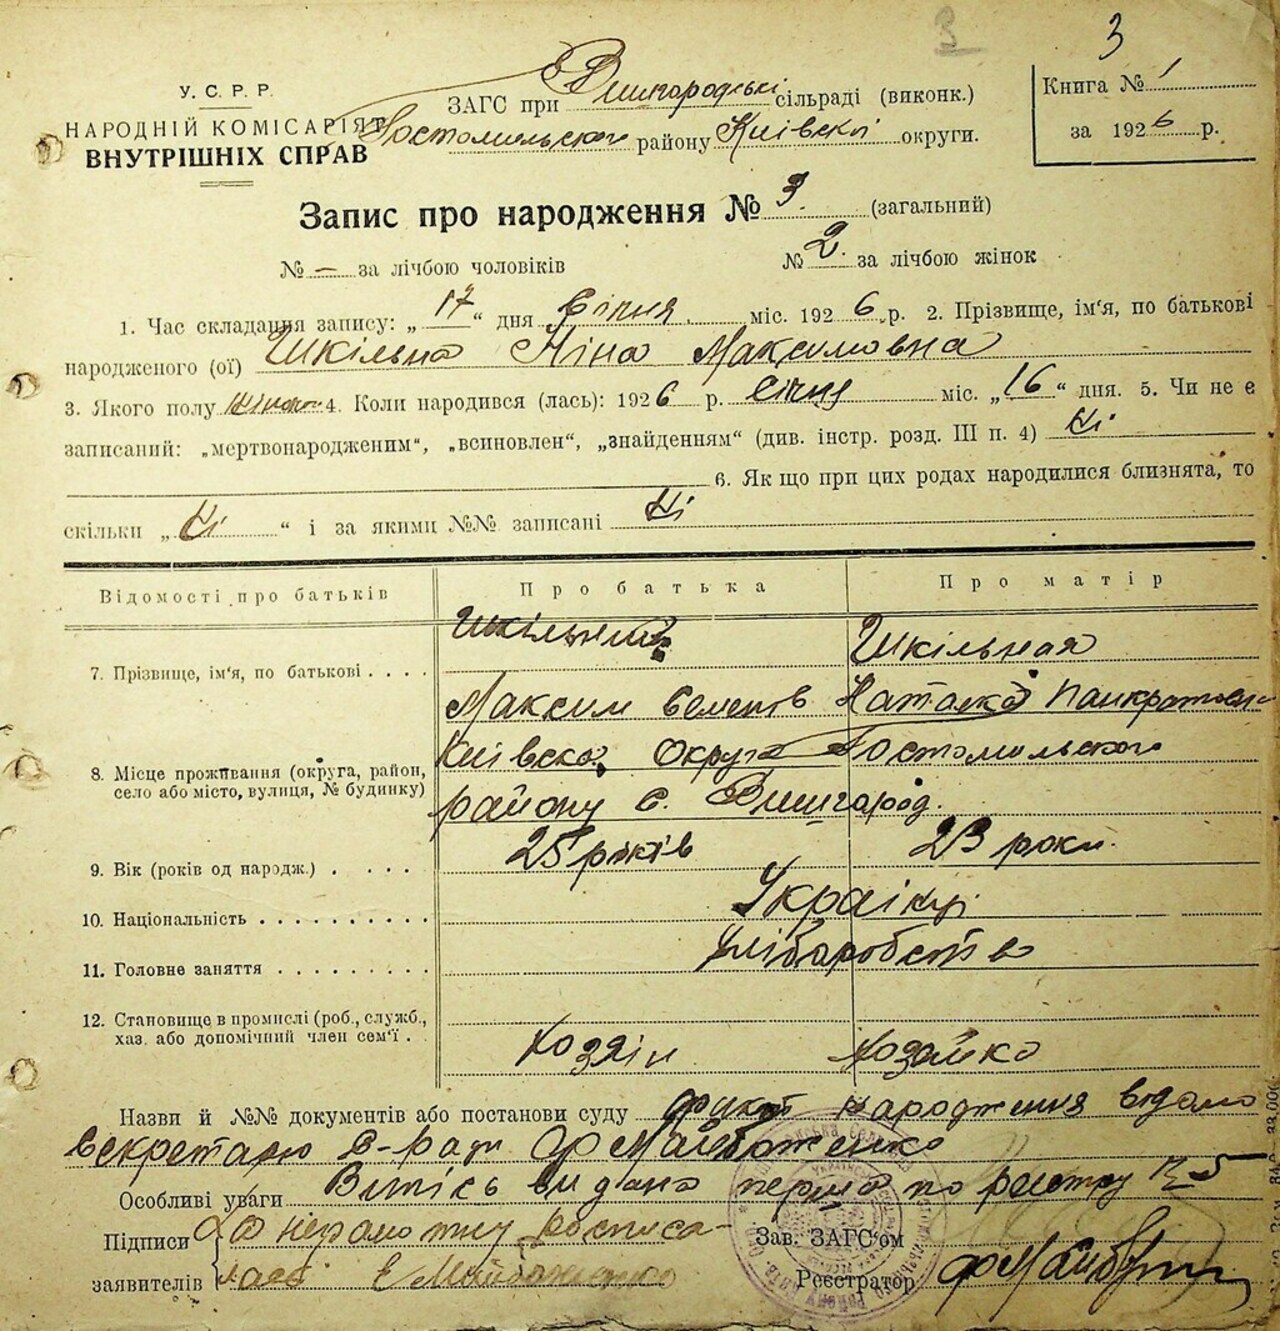 3
3
У. С. Р. Р.
НАРОДНІЙ КОМІСАРІЯТ
ВНУТРІШНІХ СПРАВ
ЗАГС при Вишгородські сільраді (виконк.)
Гостомильского району Київскої округи.
Книга № 1
за 1926 р.
Запис про народження № 3. (загальний)
№ — за лічбою чоловіків № 2. за лічбою жінок
1. Час складання запису: „17“ дня Січня міс. 1926 р. 2. Прізвище, ім'я, по батькові
народженого (ої) Шкільна Ніна Максимовна
3. Якого полу 4. Коли народився (лась): 1926 р. січня міс. „16“ дня. 5. Чи не є
записаний: „мертвонародженим“, „всиновлен“, „знайденням“ (див. інстр. розд. III п. 4) Ні
6. Як що при цих родах народилися близнята, то
скільки „Ні“ і за якими №№ записані Ні
Відомості про батьків Про батька Про матір
7. Прізвище, ім'я, по батькові . . . . Шкільний Шкільная
Максим Семенов Наталка Панкратовн
8. Місце проживання (округа, район, село або місто, вулиця, № будинку) Київска Округа Гостомильского
району с. Вишгород.
9. Вік (років од народж.) . . . . . 25 років 23 роки.
10. Національність . . . . . . . . . . Українці
11. Головне заняття . . . . . . . . . Хліборобство
12. Становище в промислі (роб., служб., хаз. або допомічний член сем'ї . . Хозяін Хозайка
Назви й №№ документів або постанови суду факт народження відомо
секретарю В-ради Ф Майбоженко
Особливі уваги Витісь видана перша по реєстру № 5
Підписи За неграмотну росписа-
заявителів лась Є Майбоженко
Зав. ЗАГС'ом
Реєстратор ФМайбо